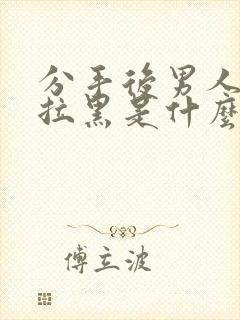 分手後男人
拉黑是什麼
傅立波